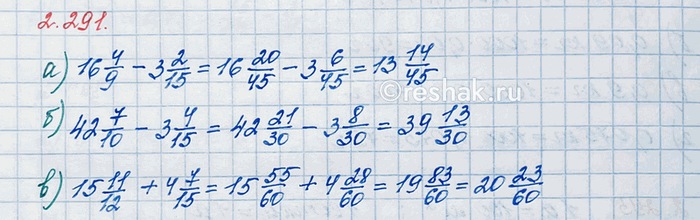 2.291.
а) 16 4/9 − 3 2/15 = 16 20/45 − 3 6/45 = 13 14/45
©reshak.ru
б) 42 7/10 − 3 4/15 = 42 21/30 − 3 8/30 = 39 13/30
в) 15 11/12 + 4 7/15 = 15 55/60 + 4 28/60 = 19 83/60 = 20 23/60